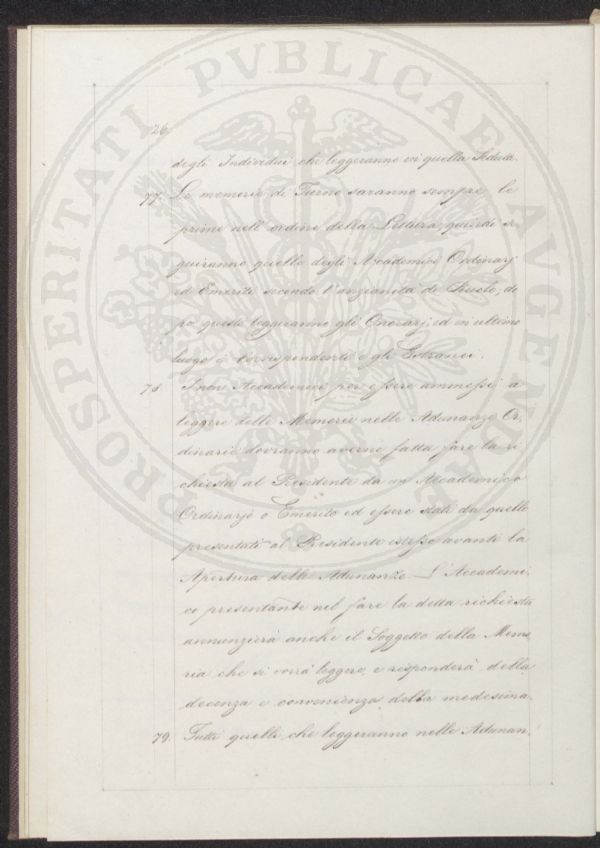 PROSPERITATI PVBLICAE AVGENDAE
26.
degli Individui che leggeranno in quella Seduta.
77. Le memorie di Turno saranno sempre le
prime nell'ordine della Lettura, quindi se
guiranno quelle degli Accademici Ordinarj
ed Emeriti secondo l'anzianità di Ruolo; do
po questi leggeranno gli Onorarj, ed in ultimo
luogo i Corrispondenti e gli Estranei.
78 I non Accademici per essere ammessi a
leggere delle Memorie nelle Adunanze Or,
dinarie dovranno averne fatta fare la ri
chiesta al Presidente da un Accademico
Ordinarjo o Emerito ed essere stati da quello
presentati al Presidente istesso avanti la
Apertura delle Adunanze. L'Accademi,
co presentante nel fare la detta richiesta
annunzierà anche il Soggetto della Memo
ria che si vorrà leggere, e risponderà della
decenza e convenienza della medesima.
79. Tutti quelli che leggeranno nelle Adunan,